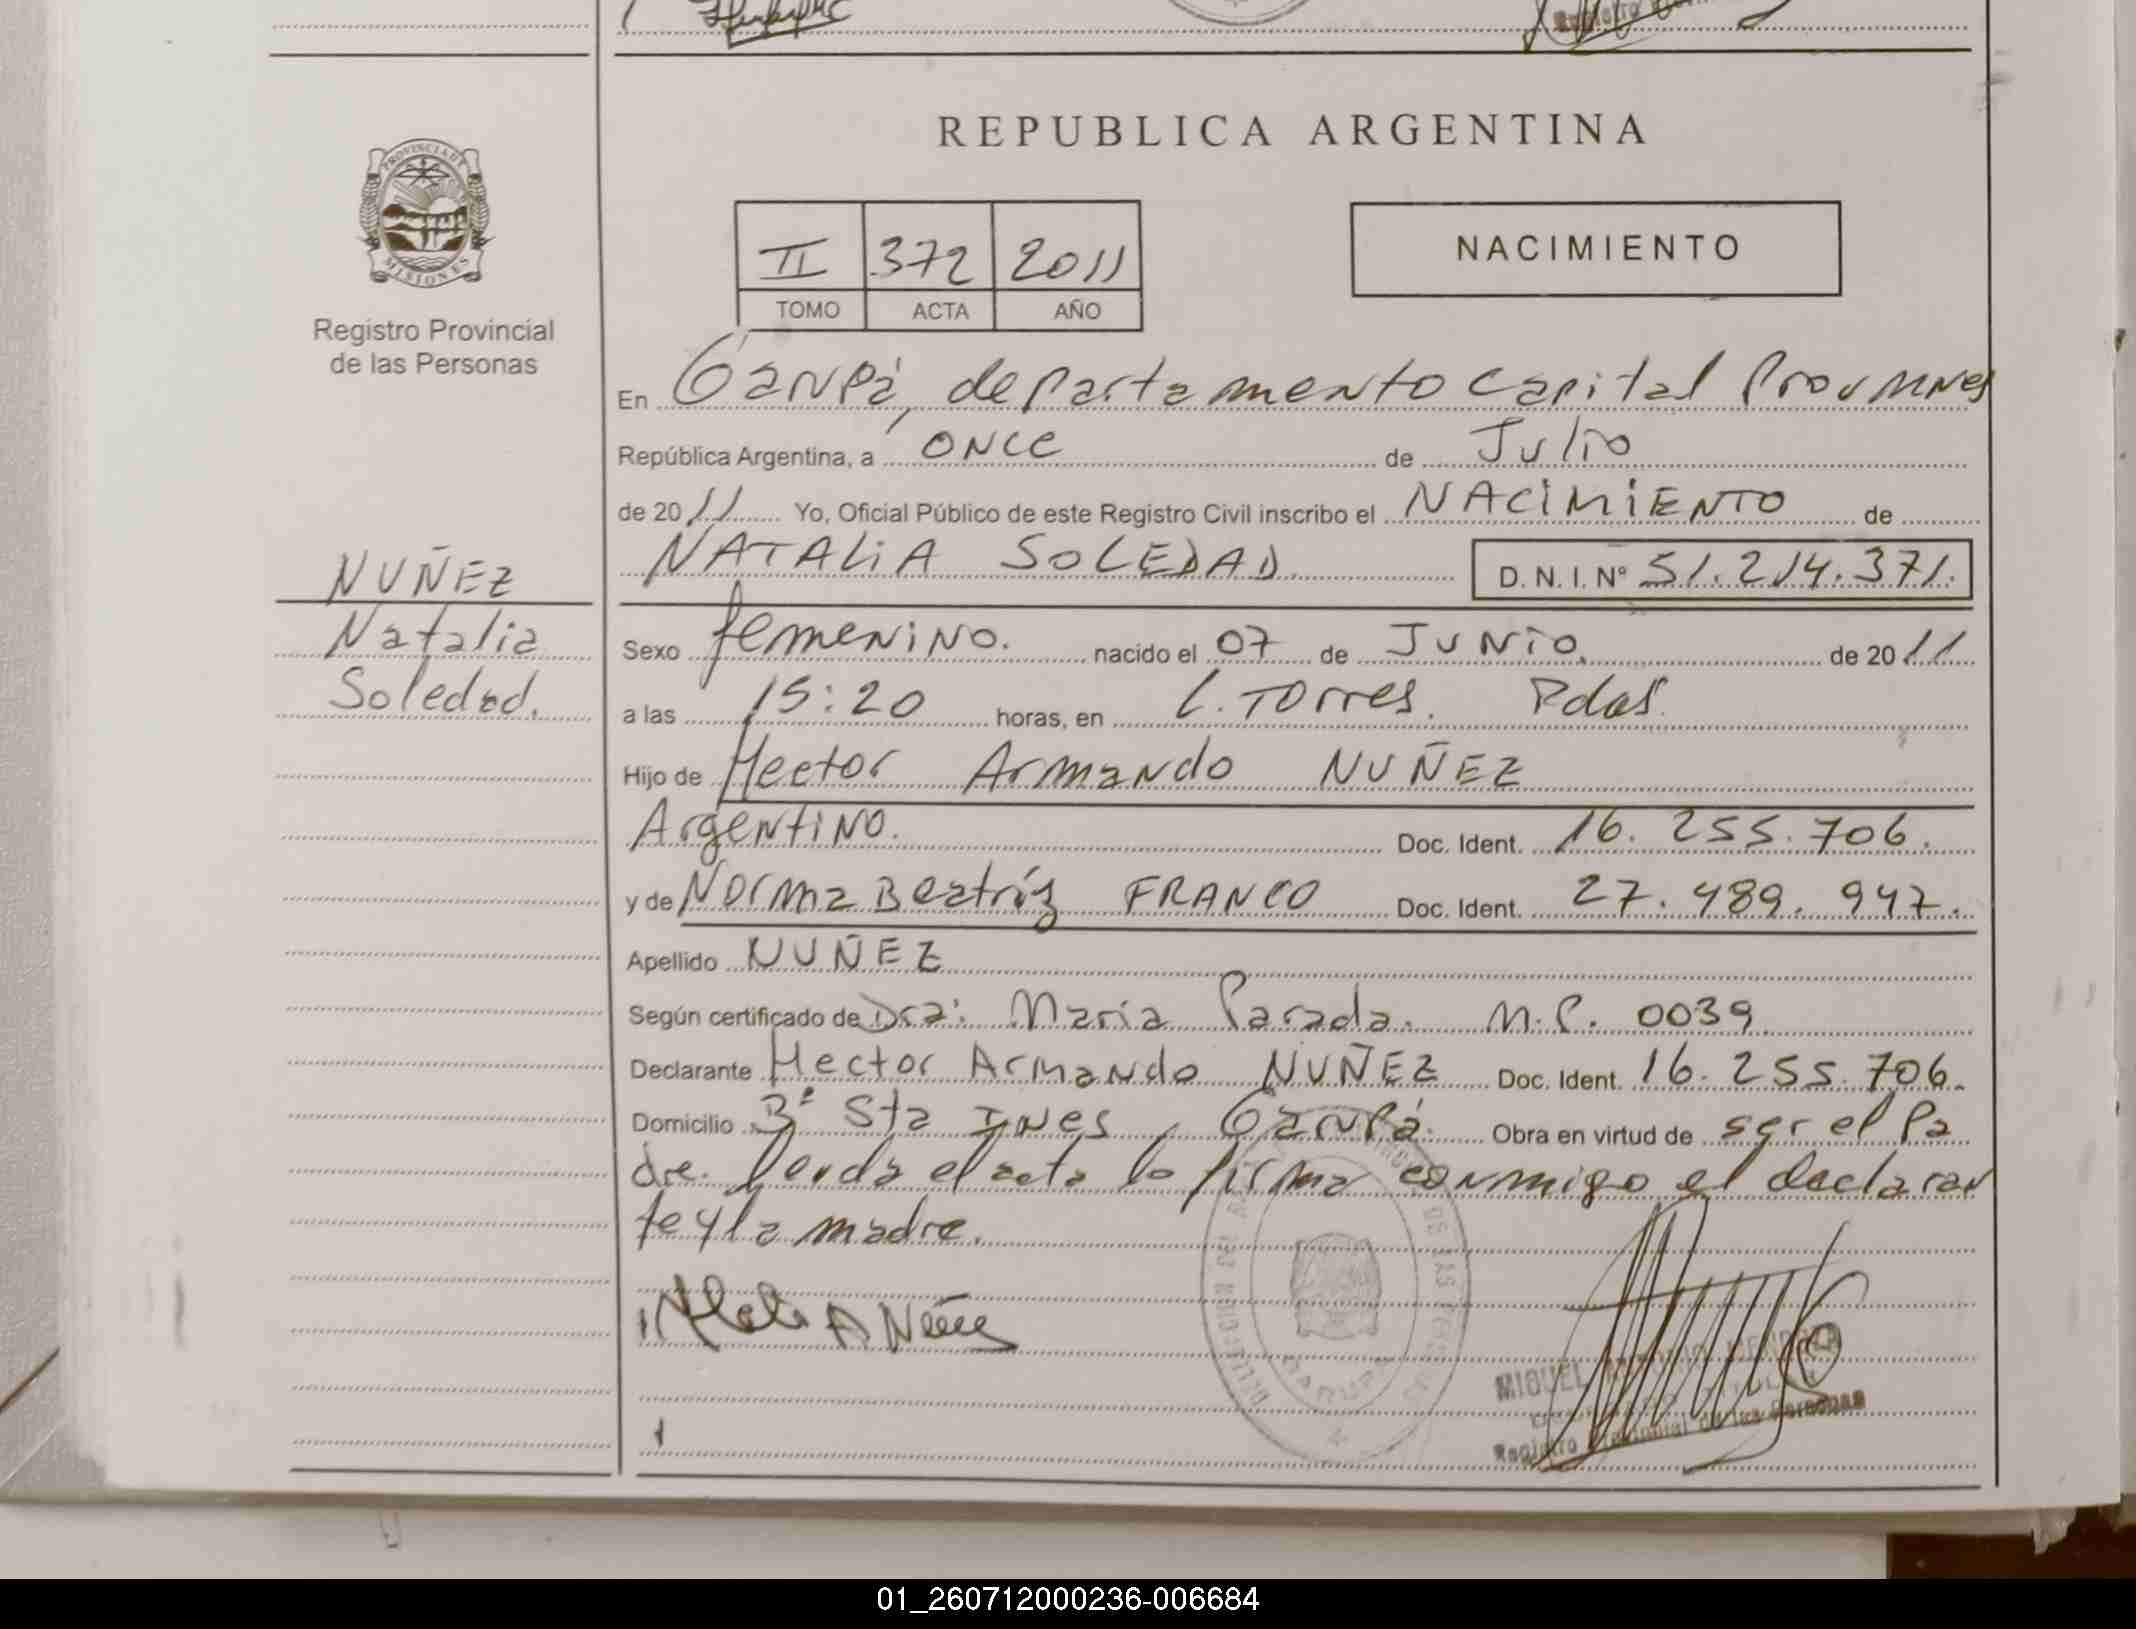 REPUBLICA ARGENTINA
PROVINCIA DE
MISIONES
Registro Provincial
de las Personas
II 372 2011
TOMO ACTA AÑO
NACIMIENTO
En Garupá, departamento Capital Prov Mnes
República Argentina, a once de Julio
de 2011 Yo, Oficial Público de este Registro Civil inscribo el NACIMIENTO de
NATALIA SOLEDAD D. N. I. Nº 51.214.371.
NUÑEZ
Natalia
Soledad.
Sexo femenino. nacido el 07 de JUNIO. de 2011
a las 15:20 horas, en L. Torres. Pdas.
Hijo de Hector Armando NUÑEZ
Argentino. Doc. Ident. 16.255.706.
y de Norma Beatríz FRANCO Doc. Ident. 27.489.947.
Apellido NUÑEZ
Según certificado de Dra: Maria Parada. M.P. 0039
Declarante Hector Armando NUÑEZ Doc. Ident. 16.255.706.
Domicilio Bº Sta Ines, Garupá. Obra en virtud de ser el Pa
dre. Leida el acta la firma conmigo el declaran
te y la madre.
A Nuñez
GARUPA
MIGUEL ANTONIO
Registro Provincial de las Personas
01_260712000236-006684